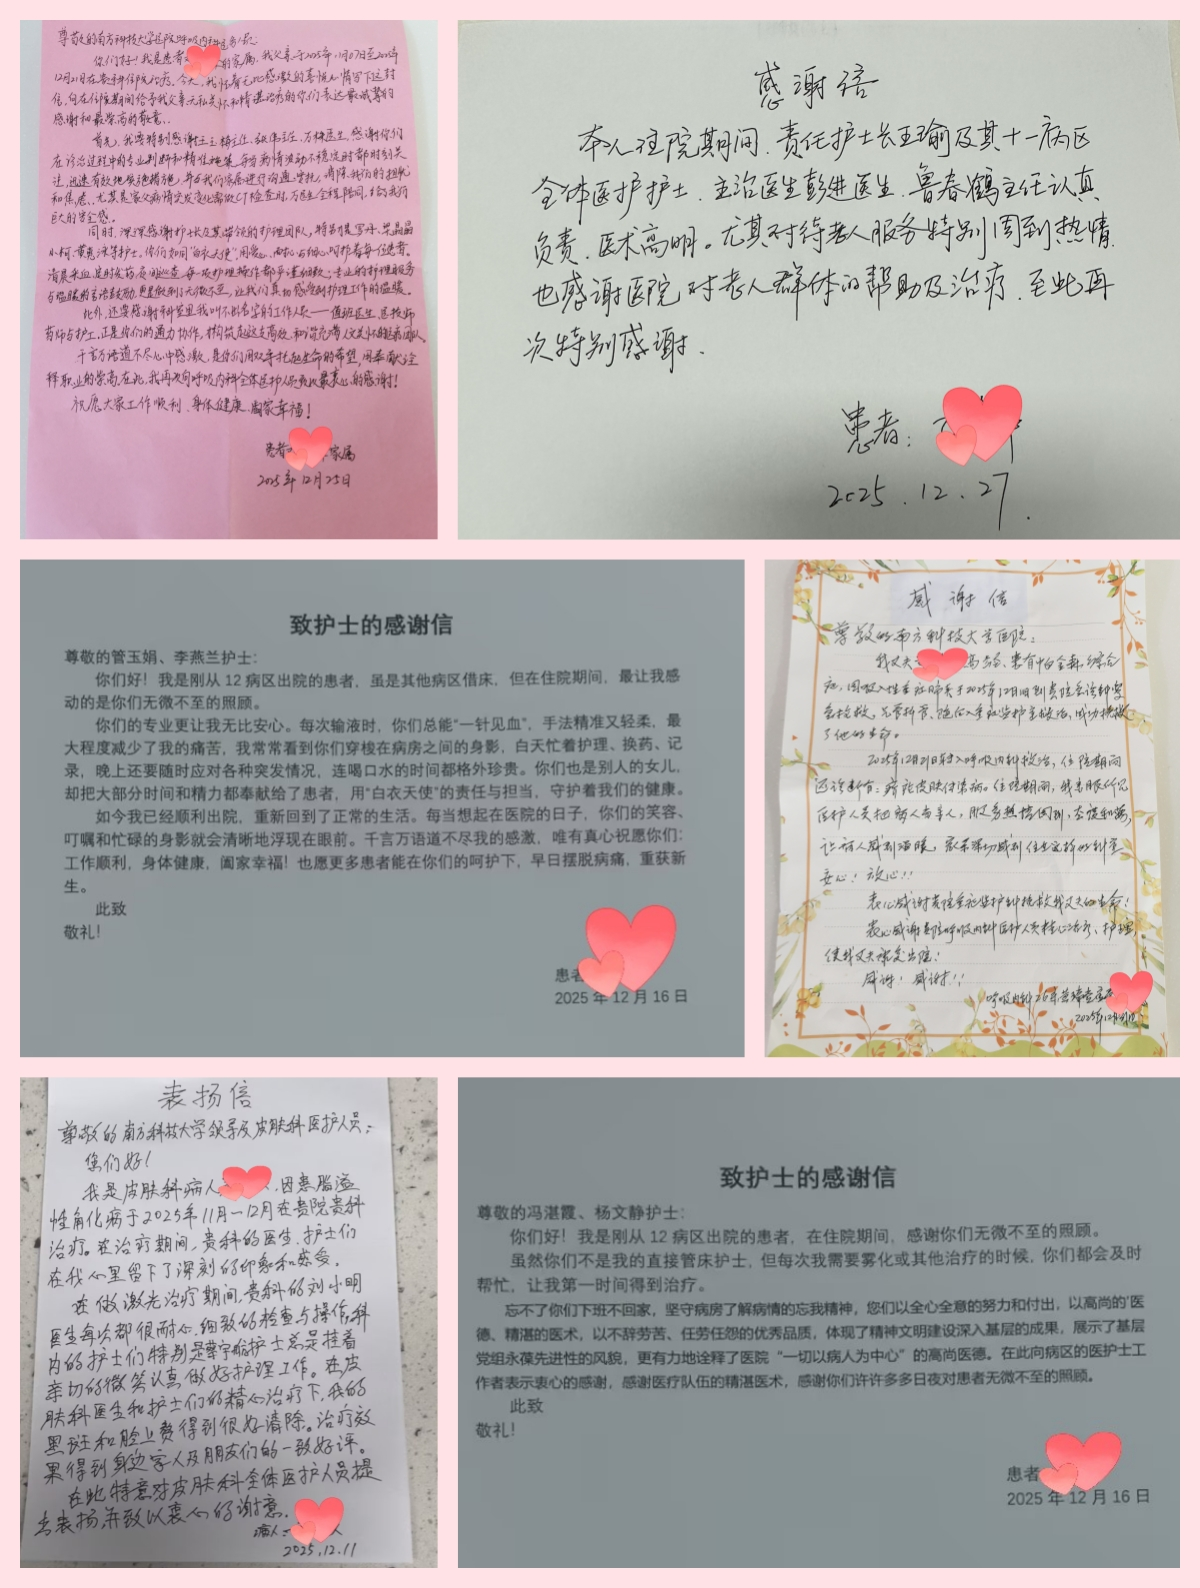 尊敬的南方科技大学医院呼吸内科医务人员：
你们好！我是患者 的家属，我父亲于2025年 月07日至2025年
12月21日在贵科住院治疗。今天，我怀着无比感激的 情写下这封
信，向在住院期间给予我父亲无私关怀和精湛治疗的你们表达最诚挚的
感谢和最崇高的敬意。
首先，我要特别感谢 主任、 主任、万 医生，感谢你们
在诊治过程中的专业判断和精准施策，每当病情波动不稳定时都时刻关
注，迅速有效地 措施，并与我们家属进行沟通安抚，消除我们的担忧
和焦虑。尤其是家父病情突发变化需做CT检查时，万医生全程陪同，给我们
巨大的安全感。
同时，深深感谢护士长及其带领的护理团队，特别
小柯、黄 等护士，你们如同“白衣天使”，用爱心、 心与细心，呵护着每个患者。
清晨采血、准时发药、夜间巡查，每一项护理操作都严谨细致；专业的护理服务
与温暖的言语鼓励，更是做到了无微不至，让我们真切感受到护理工作的温暖。
此外，还要感谢科室里我叫不出名字的工作人员——值班医生、
药师与护工，正是你们的通力协作，构筑起这支高效、和谐充满人文关怀的 团队。
千言万语道不尽心中感激，是你们用双手托起生命的希望，用奉献诠
释职业的崇高，在此，我再次向呼吸内科全体医护人员致以最衷心的感谢！
祝愿大家工作顺利、身体健康、阖家幸福！
患者 家属
2025年12月25日
感谢信
本人住院期间、责任护士长王瑜及其十一病区
全体医护护士、主治医生彭进医生、鲁春鹤主任认真
负责、医术高明。尤其对待老人服务特别周到热情
也感谢医院对老人群体的帮助及治疗、至此再
次特别感谢.
患者：
2025.12.27.
致护士的感谢信
尊敬的管玉娟、李燕兰护士：
你们好！我是刚从 12 病区出院的患者，虽是其他病区借床，但在住院期间，最让我感
动的是你们无微不至的照顾。
你们的专业更让我无比安心。每次输液时，你们总能“一针见血”，手法精准又轻柔，最
大程度减少了我的痛苦，我常常看到你们穿梭在病房之间的身影，白天忙着护理、换药、记
录，晚上还要随时应对各种突发情况，连喝口水的时间都格外珍贵。你们也是别人的女儿，
却把大部分时间和精力都奉献给了患者，用“白衣天使”的责任与担当，守护着我们的健康。
如今我已经顺利出院，重新回到了正常的生活。每当想起在医院的日子，你们的笑容、
叮嘱和忙碌的身影就会清晰地浮现在眼前。千言万语道不尽我的感激，唯有真心祝愿你们：
工作顺利，身体健康，阖家幸福！也愿更多患者能在你们的呵护下，早日摆脱病痛，重获新
生。
此致
敬礼！
患者
2025 年 12 月 16 日
感谢信
尊敬的南方科技大学医院：
我丈夫 高龄、患有帕金森综合
症，因吸入性重症肺炎于2025年12月 日到贵院急诊科
抢救、 插管、随后入重症监护室救治，成功挽救
了他的生命。
2025年12月21日转入呼吸内科救治，住院期间
还诊断有： 皮肤传染病。住院期间，
医护人员把病人当亲人，服务热情周到，态度和蔼，
让病人感到温暖，家属深切感到住在这样的科室
安心！放心！！
衷心感谢贵院重症监护科挽救我丈夫的生命！
衷心感谢贵院呼吸内科医护人员精心治疗、护理，
使我丈夫康复出院！
感谢！感谢！！
呼吸内科26床
2025年12月 日
表扬信
尊敬的南方科技大学领导及皮肤科医护人员：
您们好！
我是皮肤科病人 ，因患脂溢
性角化病于2025年11月—12月在贵院贵科
治疗。在治疗期间，贵科的医生、护士们
在我心里留下了深刻的印象和感受。
在做激光治疗期间，贵科的刘小明
医生每次都很耐心，细致的检查与操作，科
内的护士们特别是 护士总是挂着
亲切的微笑认真做好护理工作。在皮
肤科医生和护士们的精心治疗下，我的
黑斑和脸上疣得到很好清除。治疗效
果得到身边家人及朋友们的一致好评。
在此特意对皮肤科全体医护人员提
出表扬并致以衷心的谢意。
病人：
2025.12.11
致护士的感谢信
尊敬的冯湛霞、杨文静护士：
你们好！我是刚从 12 病区出院的患者，在住院期间，感谢你们无微不至的照顾。
虽然你们不是我的直接管床护士，但每次我需要雾化或其他治疗的时候，你们都会及时
帮忙，让我第一时间得到治疗。
忘不了你们下班不回家，坚守病房了解病情的忘我精神，您们以全心全意的努力和付出，以高尚的‘医
德、精湛的医术，以不辞劳苦、任劳任怨的优秀品质，体现了精神文明建设深入基层的成果，展示了基层
党组永葆先进性的风貌，更有力地诠释了医院“一切以病人为中心”的高尚医德。在此向病区的医护士工
作者表示衷心的感谢，感谢医疗队伍的精湛医术，感谢你们许许多多日夜对患者无微不至的照顾。
此致
敬礼！
患者
2025 年 12 月 16 日